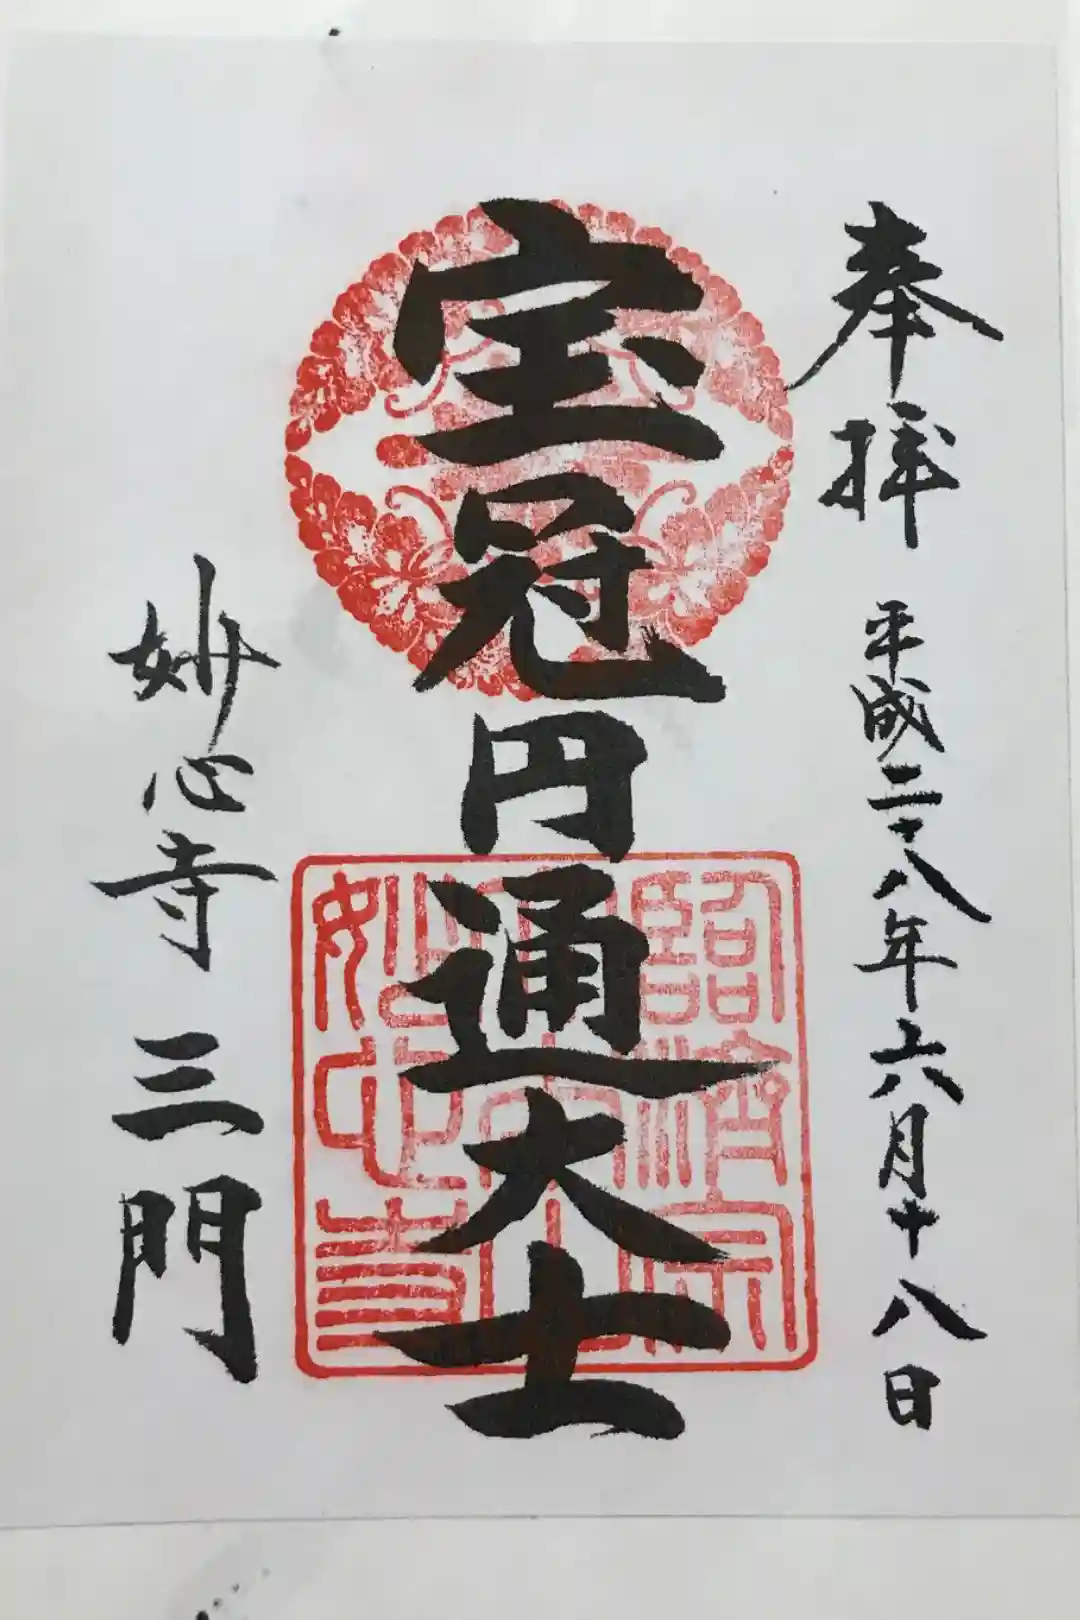 奉拝 平成二十八年六月十八日
宝冠円通大士
妙心寺 三門
臨済宗
大本山
妙心寺